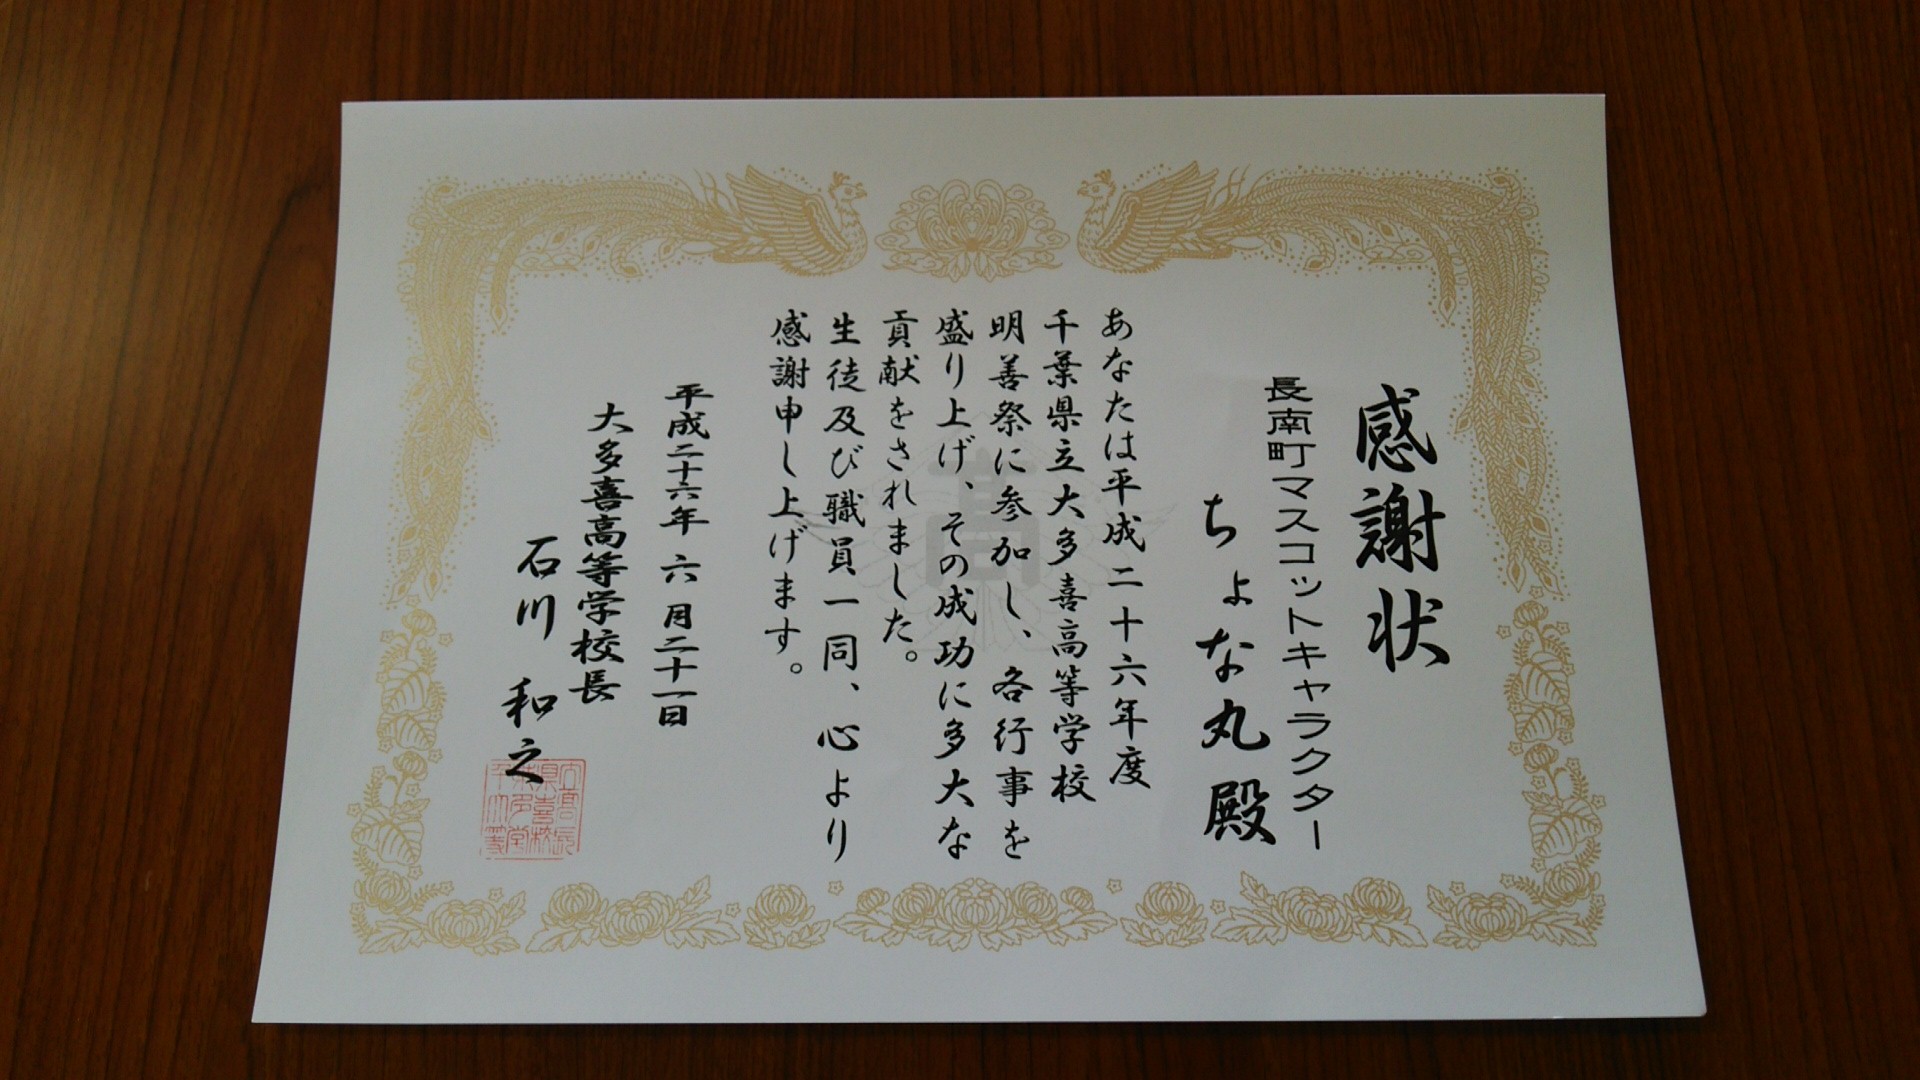 感謝状
長南町マスコットキャラクター
ちょな丸殿
あなたは平成二十六年度
千葉県立大多喜高等学校
明善祭に参加し、各行事を
盛り上げ、その成功に多大な
貢献をされました。
生徒及び職員一同、心より
感謝申し上げます。
平成二十六年 六月二十一日
大多喜高等学校長
石川 和之
高